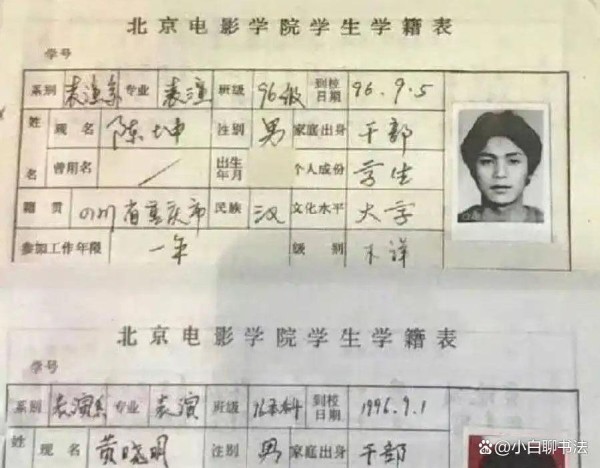 北京电影学院学生学籍表
学号
系别 表演系 专业 表演 班级 96级 到校日期 96.9.5
姓名 现名 陈坤 注别 男 家庭出身 干部
曾用名 / 出生年月 个人成份 学生
籍贯 四川省重庆市 民族 汉 文化水平 大学
参加工作年限 一年 级别 不详
北京电影学院学生学籍表
学号
系别 表演系 专业 表演 班级 96本科 到校日期 1996.9.1
姓 现名 黄晓明 注别 男 家庭出身 干部
@小白聊书法